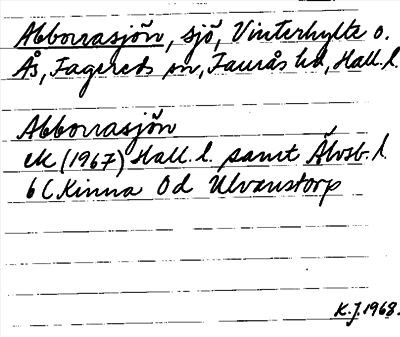 Abborrasjön, sjö, Vinterhylte o.
Ås, Fagereds sn, Faurås hd, Hall. l.
Abborrasjön
ek (1967) Hall. l. samt Älvsb. l.
6 C Kinna 0d Ulvanstorp
K.J. 1968.